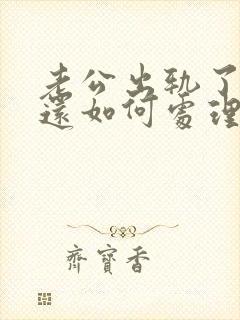 老公出轨了
還如何處理
齊寶香